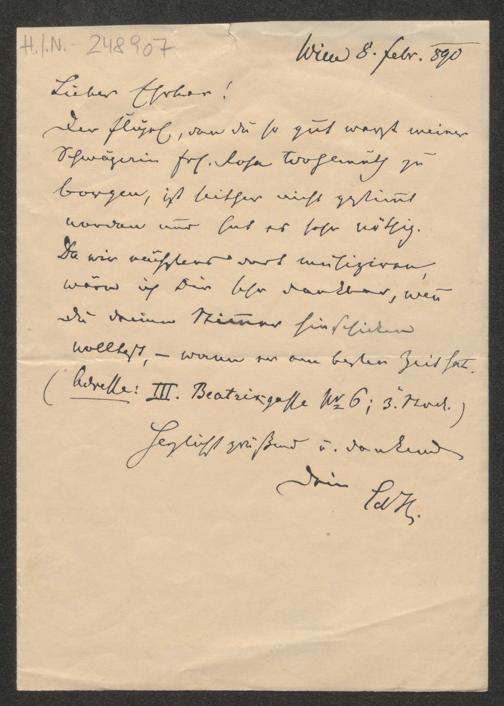 H.I.N.- 248907
Wien 8. Febr. 890
Lieber Ehrbar!
Der Flügel, den du so gut warst meiner
Schwägerin Frl. Rosa Wohlmuth zu
borgen, ist seither nicht gestimmt
worden und hat es sehr nöthig.
Da wir nächstens dort musiziren,
wäre ich Dir sehr dankbar, wen
du deinen Stimer hinschicken
wolltest, – wann er am besten Zeit hat.
(Adresse: III. Beatrixgasse Nr 6; 3. Stock.)
Herzlichst grüßend u. dankend
Dein
EdH.